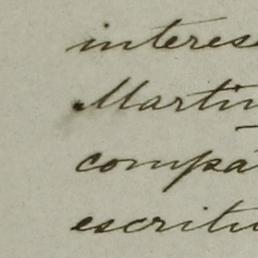 interes
Martin
compa
escritu